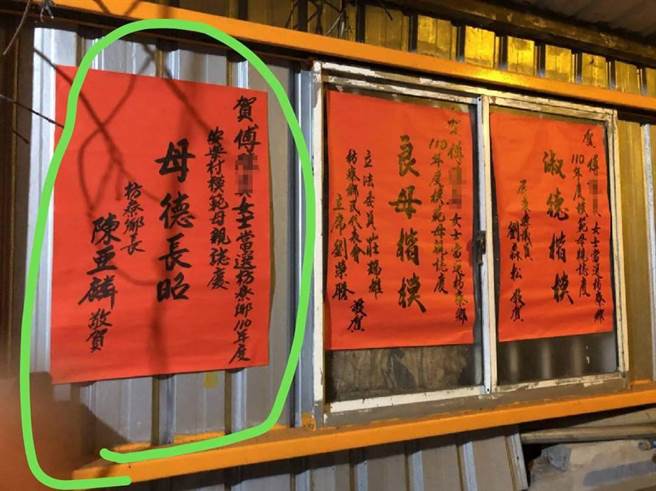 賀傅女士當選枋寮鄉110年度
安樂村模範母親誌慶
母德長昭
枋寮鄉長
陳亞麟 敬賀
賀傅女士當選枋寮鄉
110年度模範母親誌慶
良母楷模
立法委員莊瑞雄
枋寮鄉民代表會
主席劉榮 敬賀
賀傅女士當選枋寮鄉
110年度模範母親誌慶
淑媛楷模
屏東縣議員
劉森松 敬賀